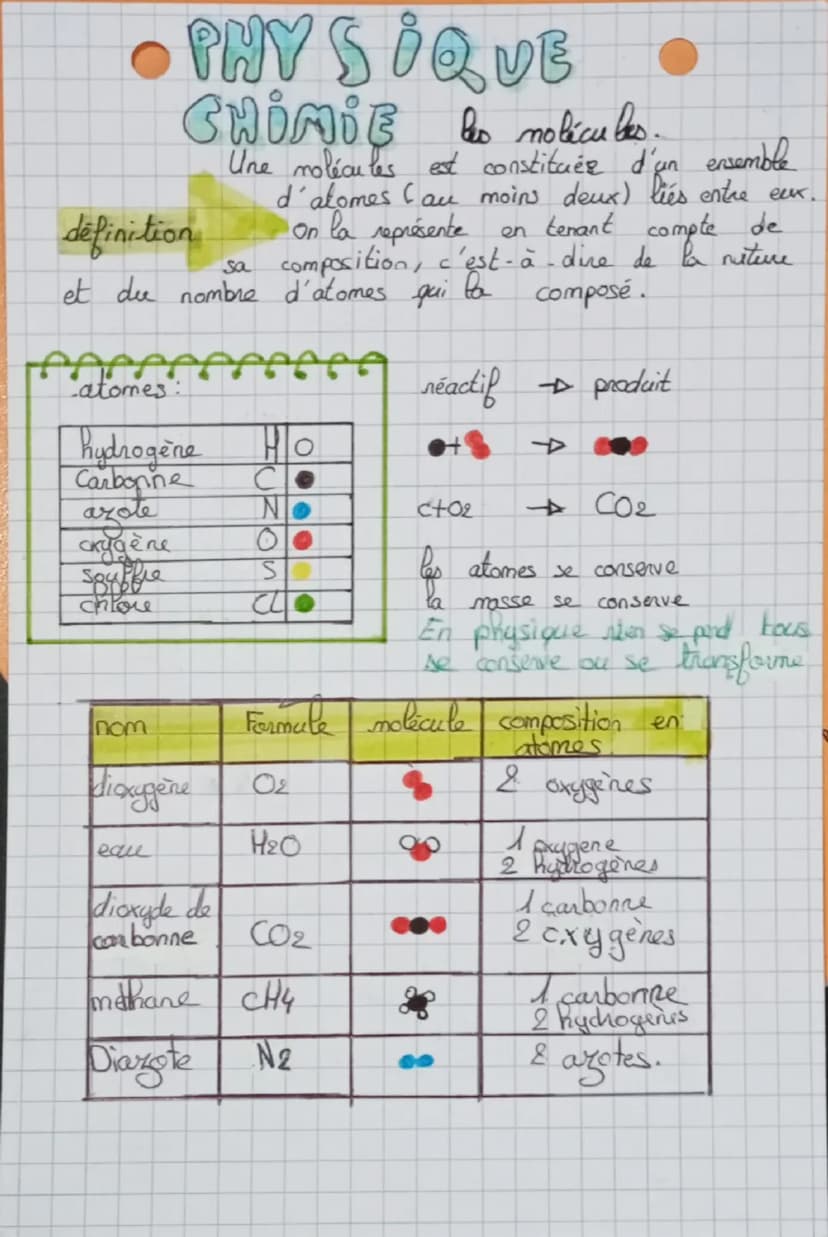 PHYSIQUE
CHIMIE les molécules.
Une molécules est constituée d'un ensemble
d'atomes (au moins deux) liés entre eux.
définition on la représente en tenant compte de
sa composition, c'est-à-dire de la nature
et du nombre d'atomes qui la composé.
atomes:
hydrogène H
Carbonne C
azote N
oxygène O
souffre S
chlore CL
réactif → produit
+ →
C+O2 → CO2
les atomes se conserve
la masse se conserve
En physique rien se perd tous
se conserve ou se transforme
nom Formule molécule composition en
atomes
dioxygène O2 2 oxygènes
eau H2O 1 oxygene
2 hydrogènes
dioxyde de
carbonne CO2 1 carbonne
2 oxygènes
méthane CH4 1 carbonne
2 hydrogènes
Diazote N2 2 azotes.